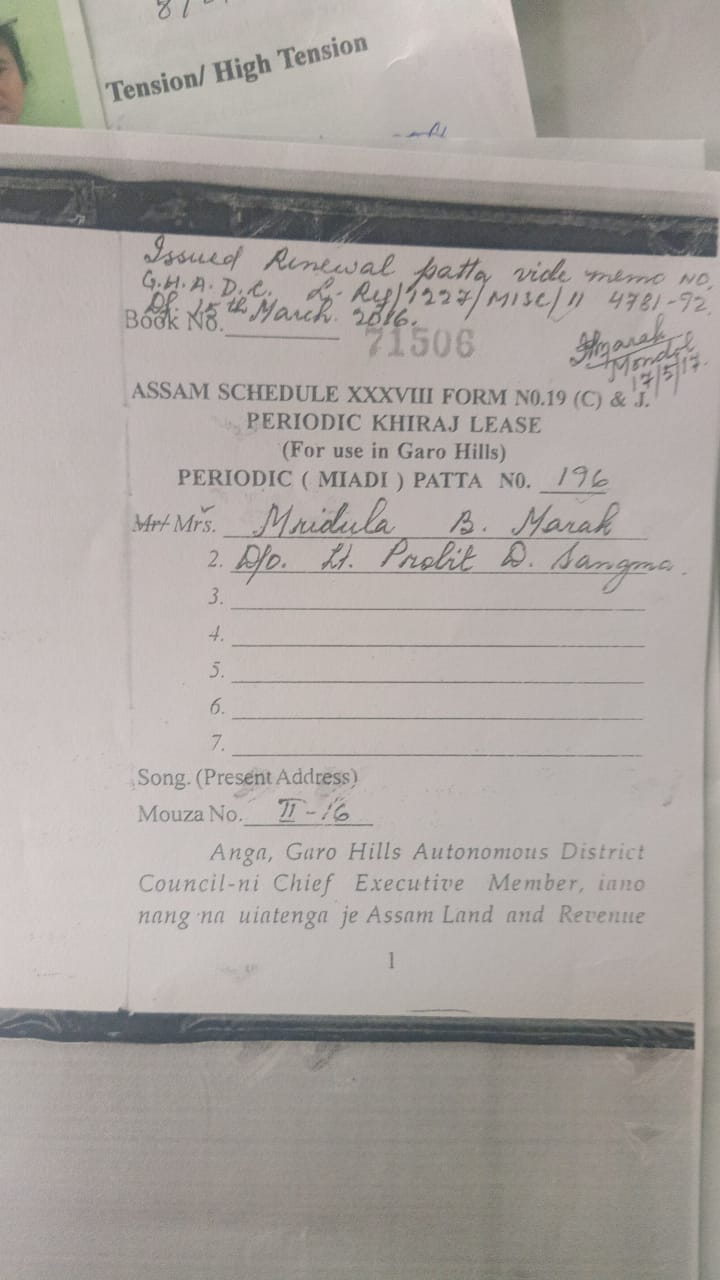 Tension/ High Tension
Issued Renewal patta vide memo NO.
G.H.A.D.C. L-Rev/1227/MISC/11 4781-92
Df. 15th March 2016.
Book No.
71506
Marak
Mondol
17/5/17.
ASSAM SCHEDULE XXXVIII FORM N0.19 (C) & J.
PERIODIC KHIRAJ LEASE
(For use in Garo Hills)
PERIODIC ( MIADI ) PATTA N0. 196
Mr/ Mrs. Mridula B. Marak
2. D/o. Lt. Probit D. Sangma.
3.
4.
5.
6.
7.
Song. (Present Address)
Mouza No. II-16
Anga, Garo Hills Autonomous District
Council-ni Chief Executive Member, iano
nang·na uiatenga je Assam Land and Revenue
1